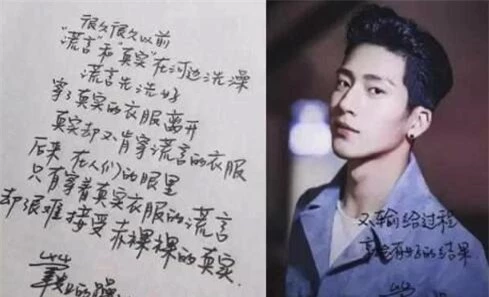 很久很久以前
"谎言"和"真实"在河边洗澡
谎言先洗好
穿了真实的衣服离开
真实却不肯穿谎言的衣服
后来 在人们的眼里
只有穿着真实衣服的谎言
却很难接受赤裸裸的真实.
不输给过程
就会有好的结果